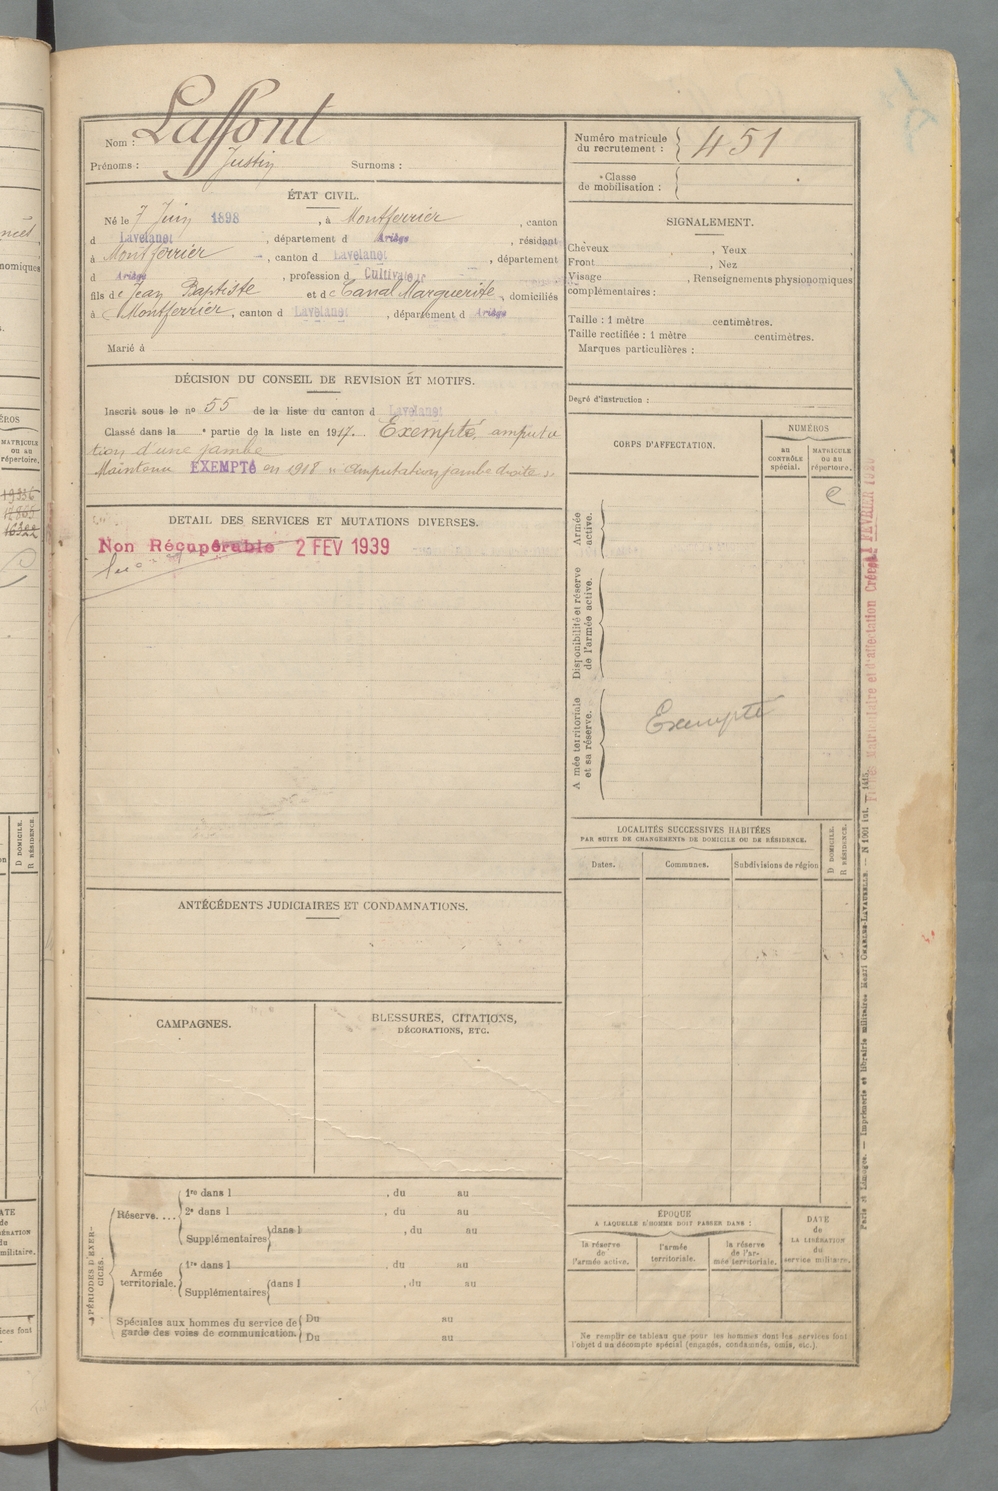 Nom : Laffont
Prénoms : Justin Surnoms :
ÉTAT CIVIL.
Né le 7 Juin 1898, à Montferrier, canton
d Lavelanet, département d Ariège, résidant
à Montferrier, canton d Lavelanet, département
d Ariège, profession d Cultivateur
fils de Jean Baptiste et de Canal Marguerite, domiciliés
à Montferrier, canton d Lavelanet, département d Ariège
Marié à
DÉCISION DU CONSEIL DE REVISION ET MOTIFS.
Inscrit sous le no 55 de la liste du canton d Lavelanet
Classé dans la e partie de la liste en 1917. Exempté, amputa
tion d'une jambe
Maintenu EXEMPTé en 1918 "amputation jambe droite"
DETAIL DES SERVICES ET MUTATIONS DIVERSES.
Non Récupérable 2 FEV 1939
ANTÉCÉDENTS JUDICIAIRES ET CONDAMNATIONS.
CAMPAGNES.
BLESSURES, CITATIONS,
DÉCORATIONS, ETC.
PÉRIODES D'EXER-
CICES.
Réserve....
1re dans l , du au
2e dans l , du au
Supplémentaires dans l , du au
Armée
territoriale.
1re dans l , du au
Supplémentaires dans l , du au
Spéciales aux hommes du service de
garde des voies de communication.
Du au
Du au
Numéro matricule
du recrutement : 451
Classe
de mobilisation :
SIGNALEMENT.
Cheveux , Yeux ,
Front , Nez ,
Visage , Renseignements physionomiques
complémentaires :
Taille : 1 mètre centimètres.
Taille rectifiée : 1 mètre centimètres.
Marques particulières :
Degré d'instruction :
CORPS D'AFFECTATION.
NUMÉROS
au
CONTRÔLE
spécial.
MATRICULE
ou au
répertoire.
Armée
active.
Disponibilité et réserve
de l'armée active.
A mée territoriale
et sa réserve.
Exempté
LOCALITÉS SUCCESSIVES HABITÉES
PAR SUITE DE CHANGEMENTS DE DOMICILE OU DE RÉSIDENCE.
Dates.
Communes.
Subdivisions de région
D DOMICILE.
R RÉSIDENCE.
ÉPOQUE
A LAQUELLE L'HOMME DOIT PASSER DANS :
la réserve
de
l'armée active.
l'armée
territoriale.
la réserve
de l'ar-
mée territoriale.
DATE
de
LA LIBÉRATION
du
service militaire.
Ne remplir ce tableau que pour les hommes dont les services font
l'objet d'un décompte spécial (engagés, condamnés, omis, etc.).
Paris et Limoges. — Imprimerie et librairie militaires Henri CHARLES-LAVAUZELLE. —
MATRICULE
ou au
répertoire.